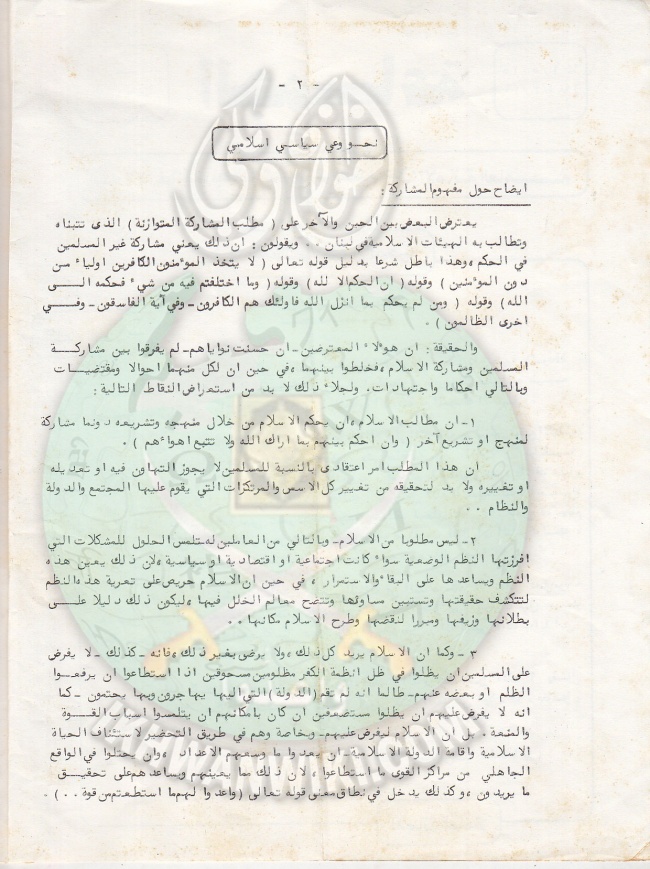 - ٢ -
نحو وعي سياسي اسلامي
ايضاح حول مفهوم المشاركة :
يعترض البعض بين الحين والآخر على ( مطلب المشاركة المتوازنة ) الذى تتبناه
وتطالب به الهيئات الاسلامية في لبنان . . ويقولون : ان ذلك يعني مشاركة غير المسلمين
في الحكم ، وهذا باطل شرعا بدليل قوله تعالى ( لا يتخذ المؤمنون الكافرين اولياء من
دون المؤمنين ) وقوله ( ان الحكم الا لله ) وقوله ( وما اختلفتم فيه من شيء فحكمه الـى
الله ) وقوله ( ومن لم يحكم بما انزل الله فاولئك هم الكافرون ـ وفي آية الفاسقون ـ وفـي
اخرى الظالمون ) .
والحقيقة : ان هؤلاء المعترضين ـ ان حسنت نواياهم ـ لم يفرقوا بين مشاركـة
المسلمين ومشاركة الاسلام ، فخلطوا بينهما ، في حين ان لكل منهما احوالا ومقتضيـات
وبالتالي احكاما واجتهادات . ولجلاء ذلك لا بد من استعراض النقاط التالية :
١ ـ ان مطالب الاسلام ، ان يحكم الاسلام من خلال منهجه وتشريعه دونما مشاركة
لمنهج او تشريع آخر ( وان احكم بينهم بما اراك الله ولا تتبع اهواءهم ) .
ان هذا المطلب امر اعتقادى بالنسبة للمسلمين لا يجوز التهاون فيه او تعديله
او تغييره ولا بد لتحقيقه من تغيير كل الاسس والمرتكزات التي يقوم عليها المجتمع والدولة
والنظام . .
٢ ـ ليس مطلوبا من الاسلام ـ وبالتالي من العاملين له ـ تلمس الحلول للمشكلات التي
افرزتها النظم الوضعية سواء كانت اجتماعية او اقتصادية او سياسية ، لان ذلك يعين هذه
النظم ويساعدها على البقاء والاستمرار ، في حين ان الاسلام حريص على تعرية هذه النظم
لتتكشف حقيقتها وتستبين مساوئها وتتضح معالم الخلل فيها ، ليكون ذلك دليلا علـى
بطلانها وزيفها ومبررا لنقضها وطرح الاسلام مكانها . .
٣ ـ وكما ان الاسلام يريد كل ذلك ، ولا يرضى بغير ذلك ، فانه ـ كذلك ـ لا يفرض
على المسلمين ان يظلوا في ظل انظمة الكفر مظلومين مسحوقين اذا استطاعوا ان يرفعـوا
الظلم او بعضه عنهم ـ طالما انه لم تقم ( الدولة ) التي اليها يهاجرون وبها يحتمون ـ كما
انه لا يفرض عليهم ان يظلوا مستضعفين ان كان بامكانهم ان يتلمسوا اسباب القـوة
والمنعة . بل ان الاسلام ليفرض عليهم ـ وبخاصة وهم في طريق التحضير لاستئناف الحياة
الاسلامية واقامة الدولة الاسلامية ـ ان يعدوا ما وسعهم الاعداد ، وان يحتلوا في الواقع
الجاهلي من مراكز القوى ما استطاعوا ، لان ذلك مما يعينهم ويساعدهم على تحقيـق
ما يريدون ، وكذلك يدخل في نطاق معنى قوله تعالى ( واعدوا لهم ما استطعتم من قوة . . ) .